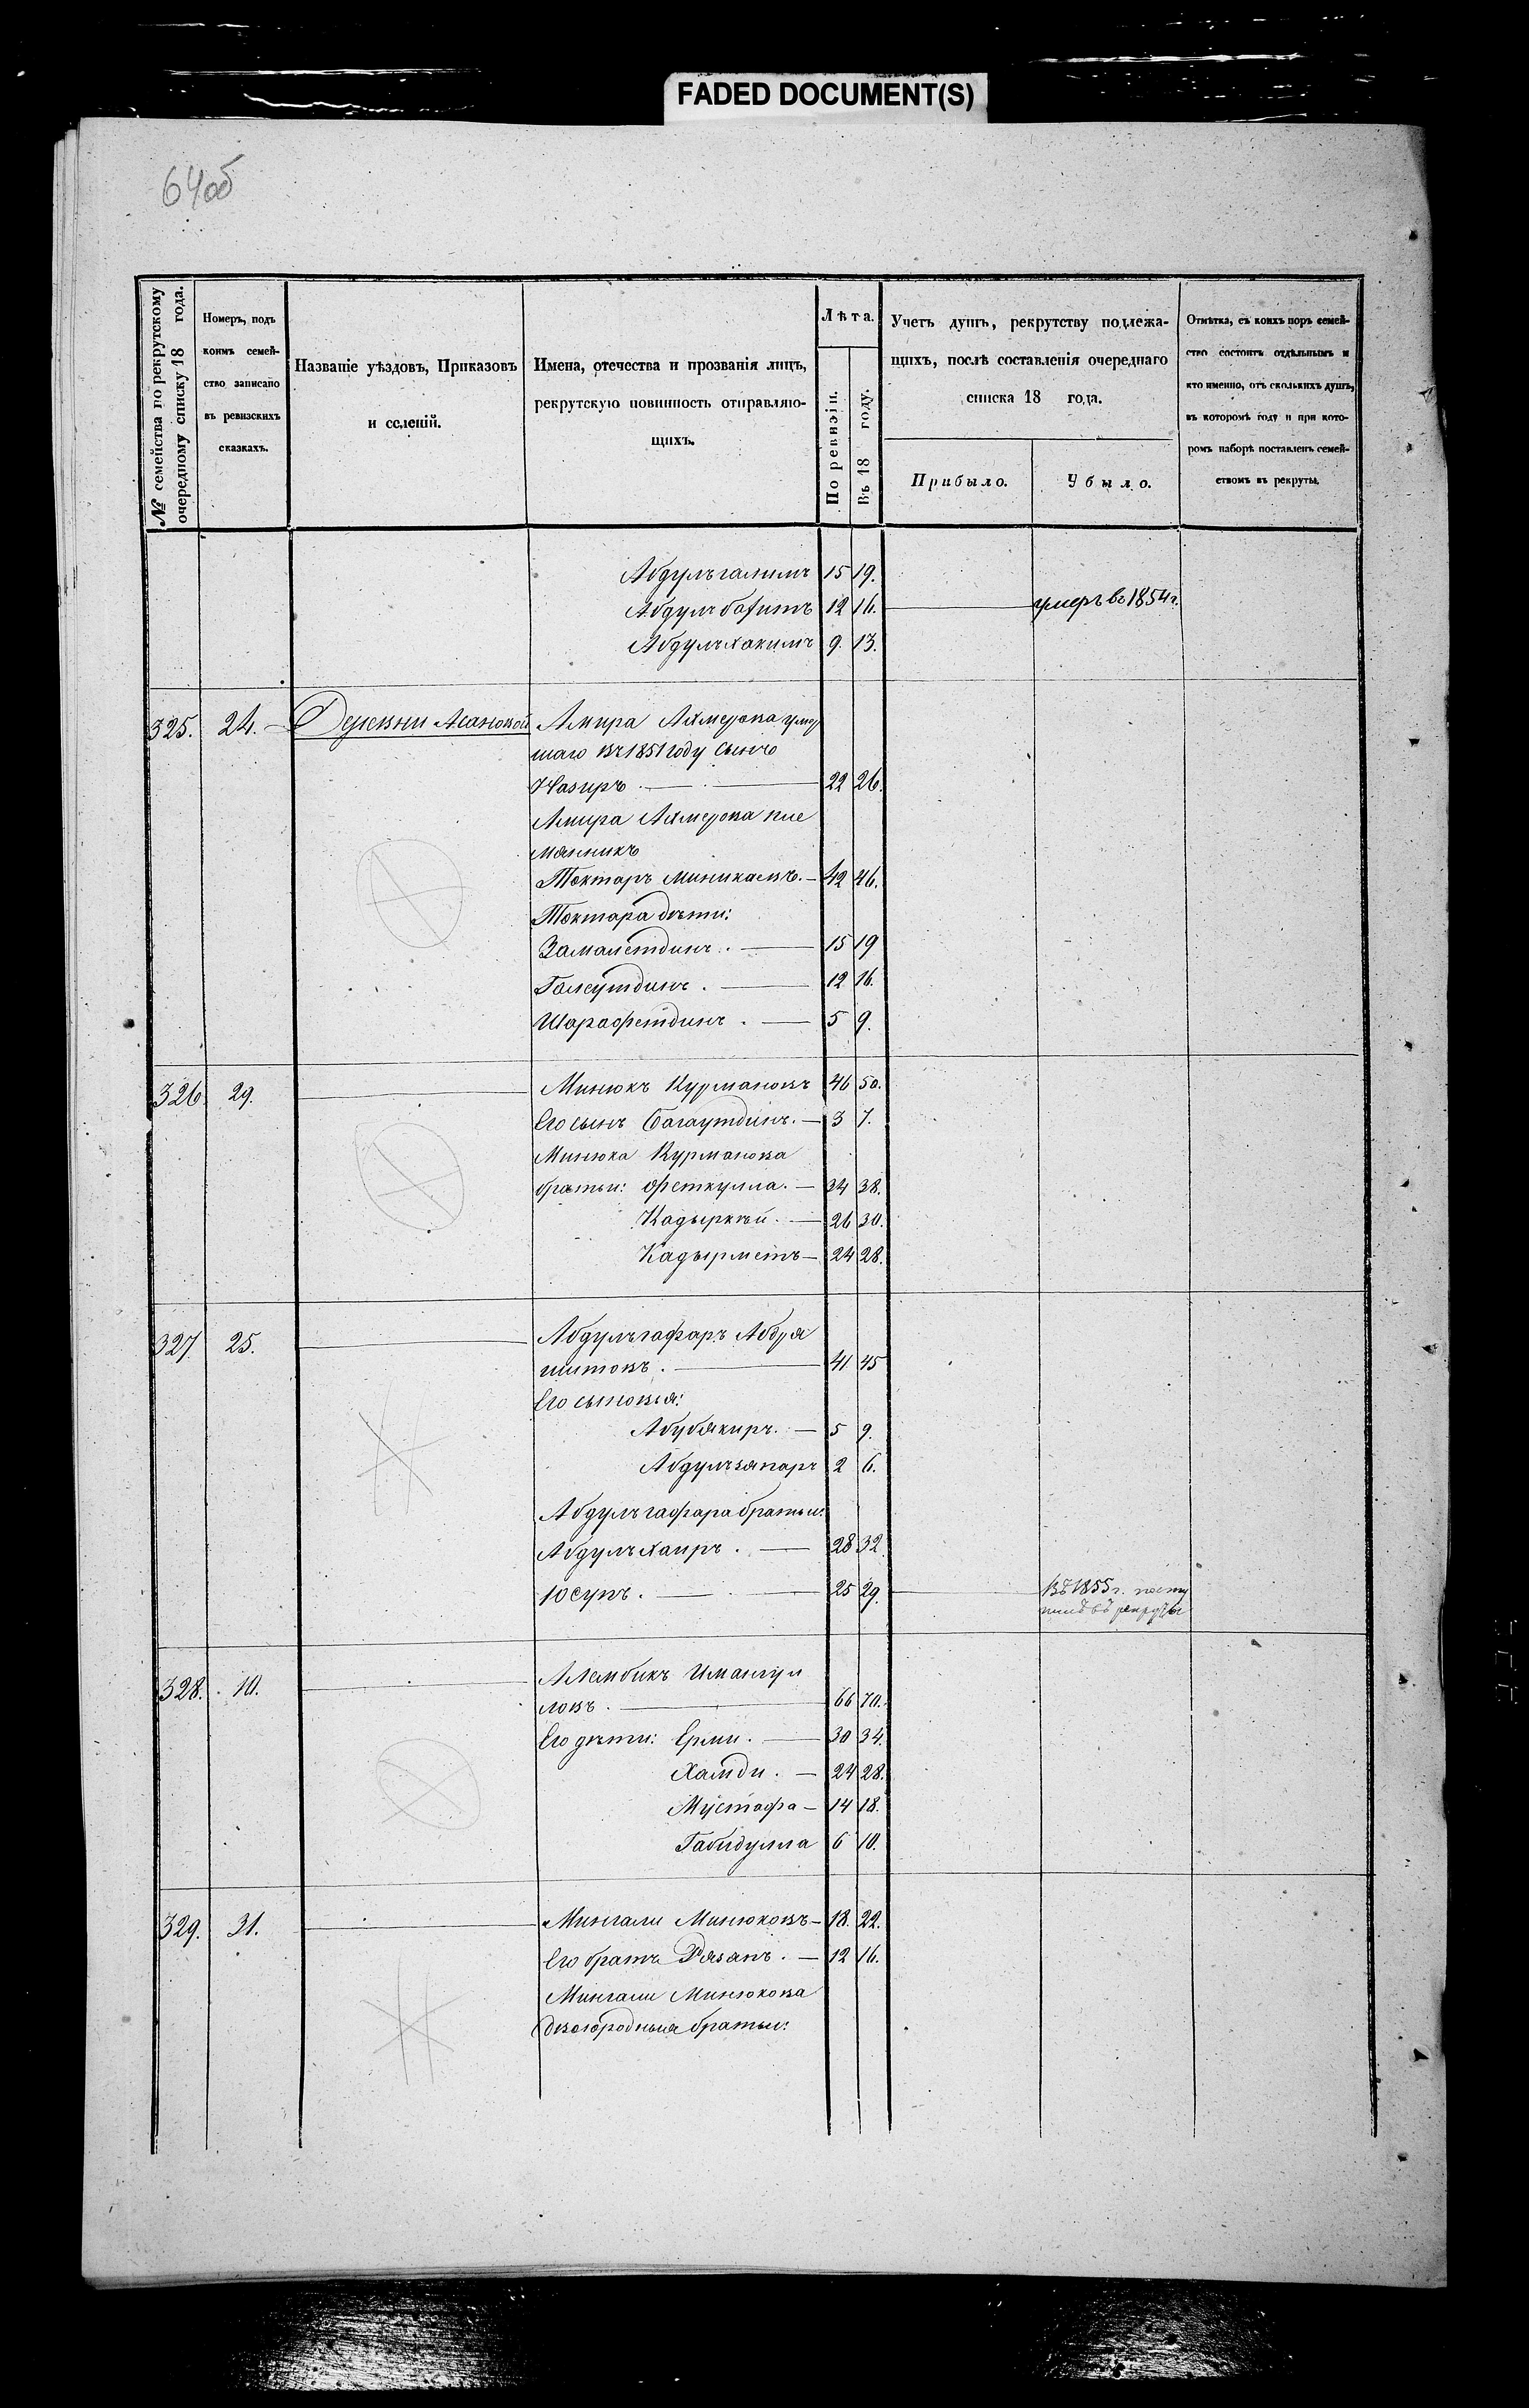 FADED DOCUMENT(S)
64об
№ семейства по рекрутскому очередному списку 18 года.
Номеръ, подъ
коимъ семей-
ство записано
въ ревизскихъ
сказкахъ.
Названіе уѣздовъ, Приказовъ
и селеній.
Имена, отечества и прозванія лицъ,
рекрутскую повинность отправляю-
щихъ.
Лѣта.
По ревизіи.
Въ 18 году.
Учетъ душъ, рекрутству подлежа-
щихъ, послѣ составленія очереднаго
списка 18 года.
Прибыло.
Убыло.
Отмѣтка, съ коихъ поръ семей-
ство состоитъ отдѣльнымъ и
кто именно, отъ сколькихъ душъ,
въ которомъ году и при кото-
ромъ наборѣ поставленъ семей-
ствомъ въ рекруты.
Абдулъгалимъ 15 19.
12 16. умеръ въ 1854 г.
Абдулъхакимъ 9. 13.
325. 24. Деревни Асановой Амира Ахмерова умер
шаго въ 1851 году сынъ
Назиръ 22 26.
Амира Ахмерова пле
мянникъ
Токтаръ Миникаевъ. 42 46.
Токтара дѣти:
Замалетдинъ. 15 19
Галеутдинъ. 12 16.
Шарафетдинъ. 5 9.
326. 29. Минюкъ Курмановъ 46 50.
Его сынъ Багаутдинъ. 3 7.
Минюка Курманова
братьи: Феткулла. 34 38.
Кадыркѣй. 26 30.
Кадырметъ 24 28.
327 25. Абдулъгафаръ Абдря
шитовъ. 41 45
Его сыновья:
Абубякиръ. 5 9.
Абдулъзяпаръ 2 6.
Абдулъгафара братьи:
Абдулъхаиръ. 28 32
Юсупъ. 25 29. Въ 1855 г. посту
пилъ въ рекруты
328. 10. Алембикъ Имангул
ловъ. 66 70.
Его дѣти: Ерми. 30 34.
Хамди. 24 28.
Мустафа 14 18.
Габидулла 6 10.
329. 31. Мингали Минюковъ 18. 22.
Его братъ Рязапъ. 12 16.
Мингали Минюкова
двоюродныя братьи: